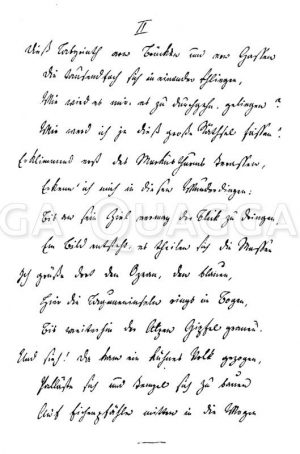 II
Dieß Labyrinth von Brücken und von Gassen
Die tausendfach sich in einander schlingen,
Wie wird es mir, es zu durchgehn, gelingen?
Wie werd ich je dieß große Räthsel fassen?
Erklimmend erst des Markusthurms Terassen,
Erkenn' ich mich in diesen Wunderdingen:
Bis an sein Ziel vermag der Blick zu dringen
GA QUAGGA
Ein Bild entsteht, es theilen sich die Massen
Ich grüße dort den Ozean, den blauen,
Hier die Laguneninseln rings im Bogen,
Bis weiterhin der Alpen Gipfel grauen.
Und sieh! Da kam ein kühnes Volk gezogen,
Palläste sich und Tempel sich zu bauen
Auf Eichenpfähle mitten in die Wogen